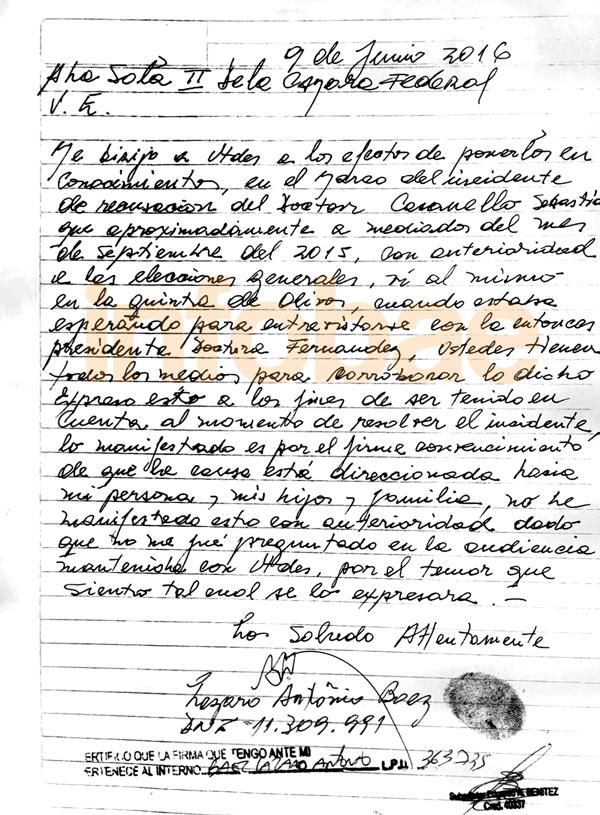 9 de Junio 2016
A la Sala II de la Camara Federal
V. E.
Me dirijo a Utdes a los efectos de ponerlos en
Conocimientos, en el Marco del insidente
de recusacion del Doctorr Casanello Sebastia
que aproximadamente a mediados del mes
de Septiembre del 2015, con anterioridad
a las elecciones Generales, vi al mismo
en la quinta de Olivos, cuando estaba
esperando para entrevistarse con la entonces
presidenta Doctora Fernandez, Ustedes tienen
todos los medios para corroborar lo dicho
Expreso esto a los fines de ser tenido en
Cuenta al momento de resolver el insidente,
lo manifestado es por el firme convencimiento
de que la causa está direccionada hasia
mi persona y mis hijos y familia, no he
manifestado esto con anterioridad dado
que no me fué preguntado en la audiencia
mantenida con Utdes, por el temor que
siento tal cual se lo expresara. –
Los Saludo Attentamente
Lazaro Antônio Baez
DNI - 11.309.991
ERTIFICO QUE LA FIRMA QUE TENGO ANTE MI
ERTENECE AL INTERNO BAEZ LAZARO ANTONIO L.P.U 363735
BENITEZ
Cred. 40337
infobae